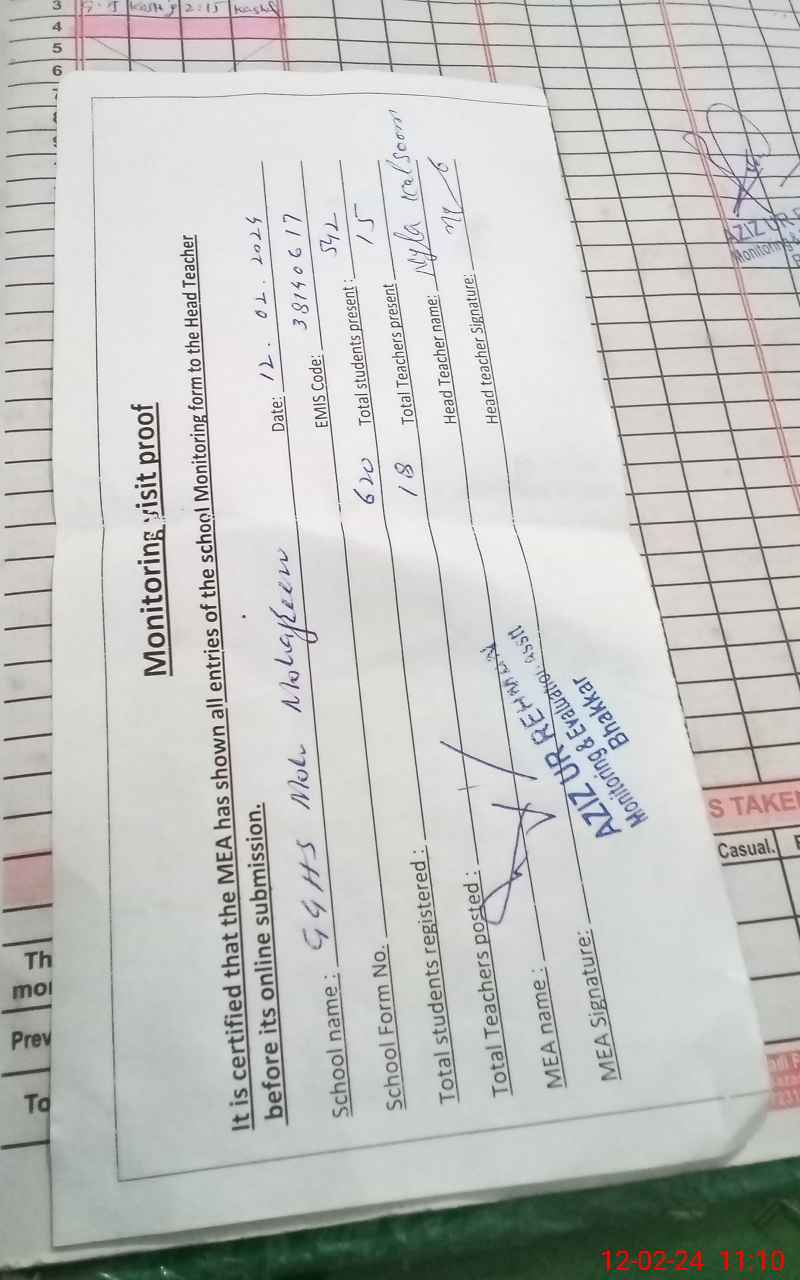 Monitoring visit proof
It is certified that the MEA has shown all entries of the school Monitoring form to the Head Teacher
before its online submission.
Date: 12.02.2024
School name: GGHS Moh. Mohajreen
EMIS Code: 38140617
School Form No.
Total students present: 542
Total students registered: 620
Total Teachers present 15
Total Teachers posted: 18
Head Teacher name: Nyla Kalsoom
MEA name:
Head teacher Signature:
MEA Signature:
AZIZ UR REHMAN
Monitoring & Evaluation Asstt
Bhakkar
3
4
5
6
2:15
AZIZ UR
Monitoring &
S TAKEN
Casual.
Th
mo
Prev
To
12-02-24 11:10